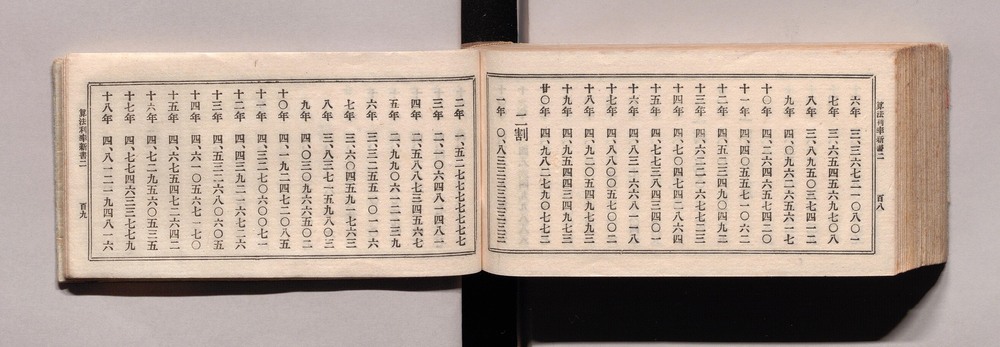 六年 三、三六七二一〇八〇一
七年 三、六五四五六九七〇八
八年 三、八九五〇三七四一二
九年 四、〇九六二六五六一七
十〇年 四、二六四六五七四二〇
十一年 四、四〇五五七一〇六二
十二年 四、五二三四九〇四九二
十三年 四、六二二一六七七三二
十四年 四、七〇四七四二八六四
十五年 四、七七三八四三四〇一
十六年 四、八三一六六八一一八
十七年 四、八八〇〇五七〇〇二
十八年 四、九二〇五四九七九三
十九年 四、九五四四三四九七三
廿〇年 四、九八二七九〇七七二
二割
十一年 〇、八三三三三三三三三
算法利率新書二 百八
二年 一、五二七七七七七七七
三年 二、一〇六四八一四八一
四年 二、五八八七三四五六七
五年 二、九九〇六一二一三九
六年 三、三二五五一〇一一六
七年 三、六〇四五九一七六三
八年 三、八三七一五九八〇三
九年 四、〇三〇九六六五〇二
十〇年 四、一九二四七二〇八五
十一年 四、三二七〇六〇〇七一
十二年 四、四三九二一六七二六
十三年 四、五三二六八〇六〇五
十四年 四、六一〇五六七一七〇
十五年 四、六七五四七二六四二
十六年 四、七二九五六〇五三五
十七年 四、七七四六三三七七九
十八年 四、八一二一九四八一六
算法利率新書二 百九